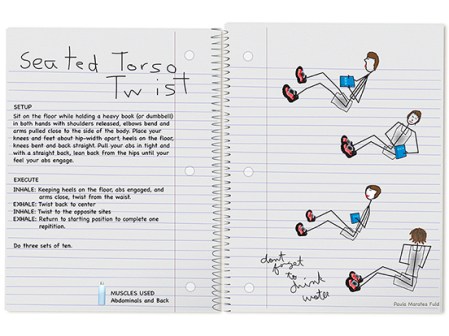 Seated Torso
Twist
SETUP
Sit on the floor while holding a heavy book (or dumbbell)
in both hands with shoulders released, elbows bend and
arms pulled close to the side of the body. Place your
knees and feet about hip-width apart, heels on the floor,
knees bent and back straight. Pull your abs in tight and
with a straight back, lean back from the hips until your
feel your abs engage.
EXECUTE
INHALE: Keeping heels on the floor, abs engaged, and
arms close, twist from the waist.
EXHALE: Twist back to center
INHALE: Twist to the opposite sites
EXHALE: Return to starting position to complete one
repitition.
Do three sets of ten.
MUSCLES USED
Abdominals and Back
dont
forget
to drink
water